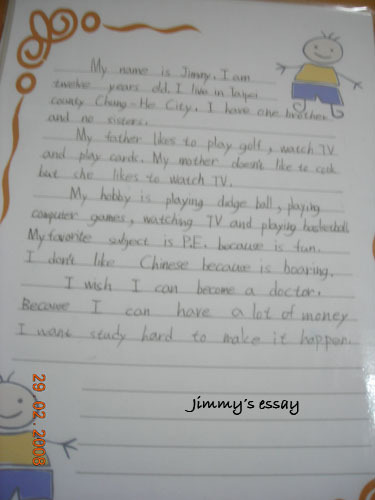 My name is Jimmy. I am
twelve years old. I live in Taipei
county Chung-He City. I have one brother
and no sisters.
My father likes to play golf, watch TV
and play cards. My mother doesn't like to cook
but she likes to watch TV.
My hobby is playing dodge ball, playing
computer games, watching TV and playing basketball.
My favorite subject is P.E. because is fun.
I don't like Chinese because is boaring.
I wish I can become a doctor.
Because I can have a lot of money
I want study hard to make it happen.
jimmy's essay
29.02.2008